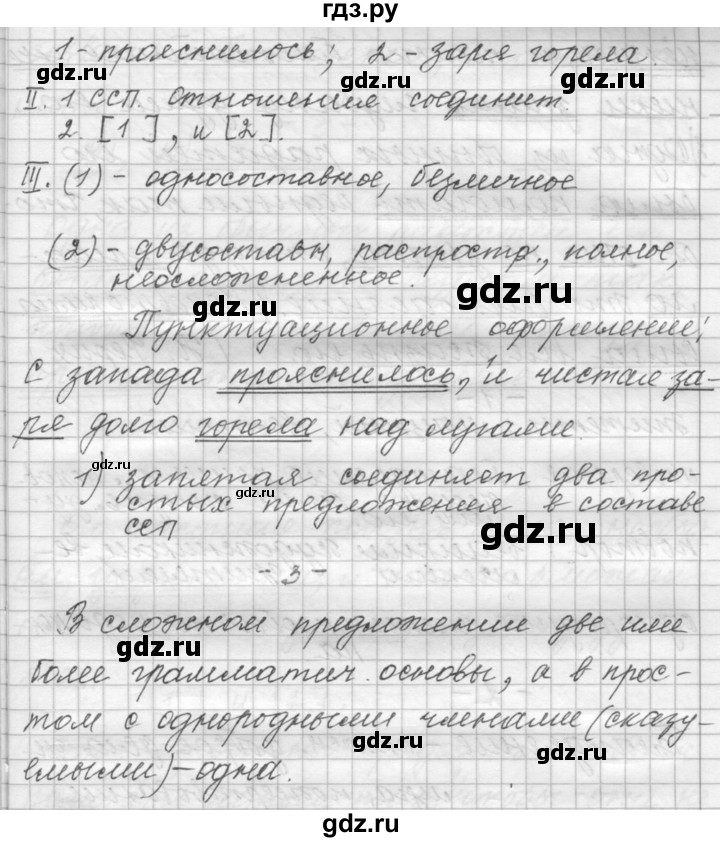 гдз.ру
1 - прояснилось; 2 - заря горела.
gdz.ru gdz.ru
II. 1 ССП. Отношения соединит.
2. [1], и [2].
gdz.ru
III. (1) - односоставное, безличное
(2) - двусоставн, распростр., полное,
неосложненное.
gdz.ru gdz.ru
Пунктуационное оформление:
С запада прояснилось,¹ и чистая за-
ря долго горела над лугами.
gdz.ru
1) запятая соединяет два про-
gdz.ru
стых предложения в составе
ССП
gdz.ru
- 3 -
В сложном предложении две или
gdz.ru
более грамматич. основы, а в прос-
том с однородными членами (сказу-
gdz.ru
емыми) - одна.
gdz.ru